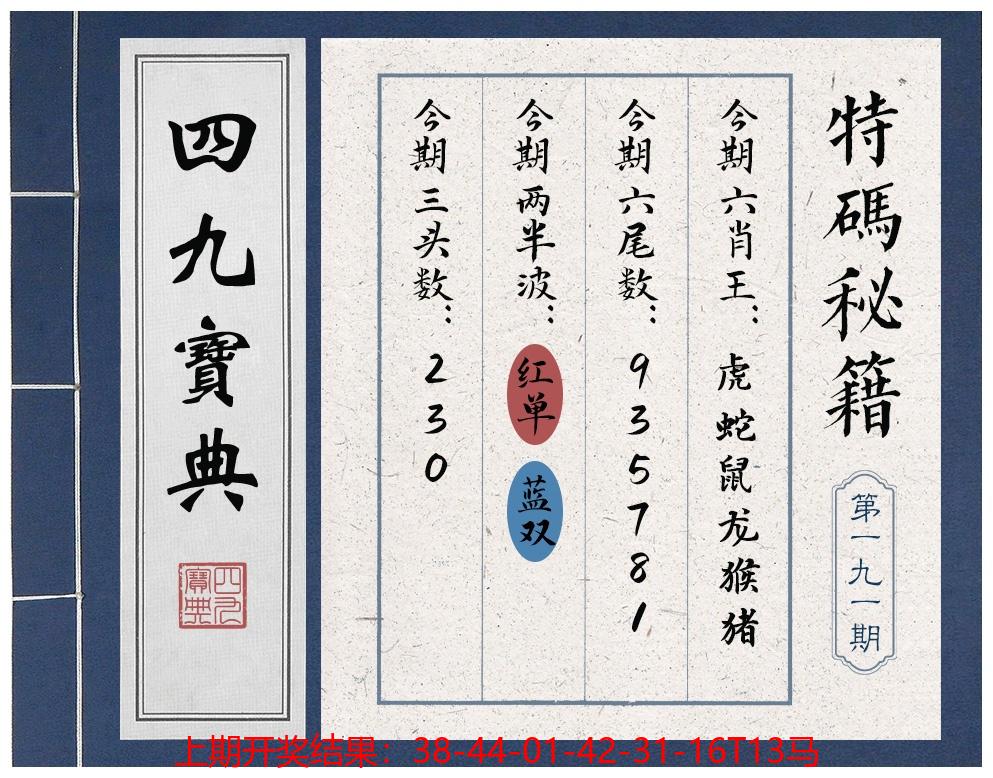 特碼秘籍
第一九一期
今期六肖王：虎蛇鼠龙猴猪
今期六尾数：935781
今期两半波：红单 蓝双
今期三头数：230
四九寶典
四九寶典
上期开奖结果：38-44-01-42-31-16T13马